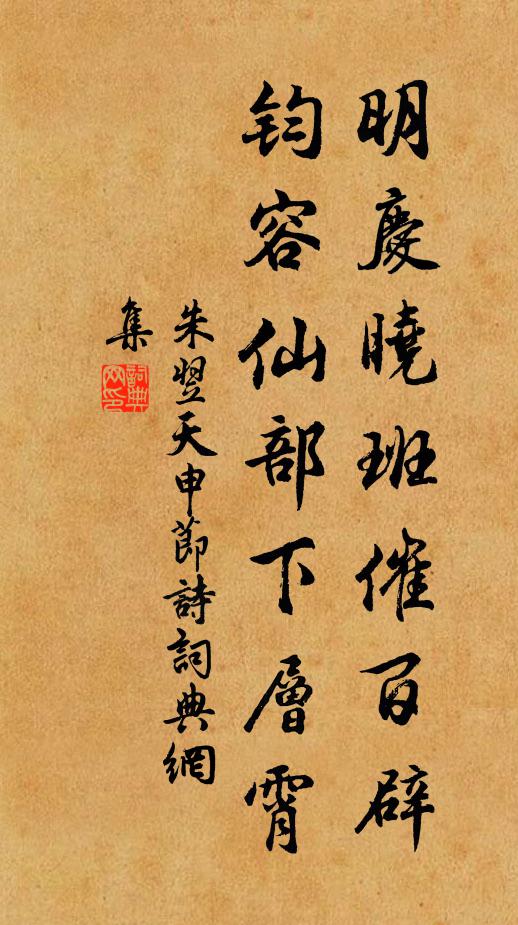 明慶曉班催百辟
鈞容仙部下層霄
朱翌天申節詩詞典網
集
詞典
网印